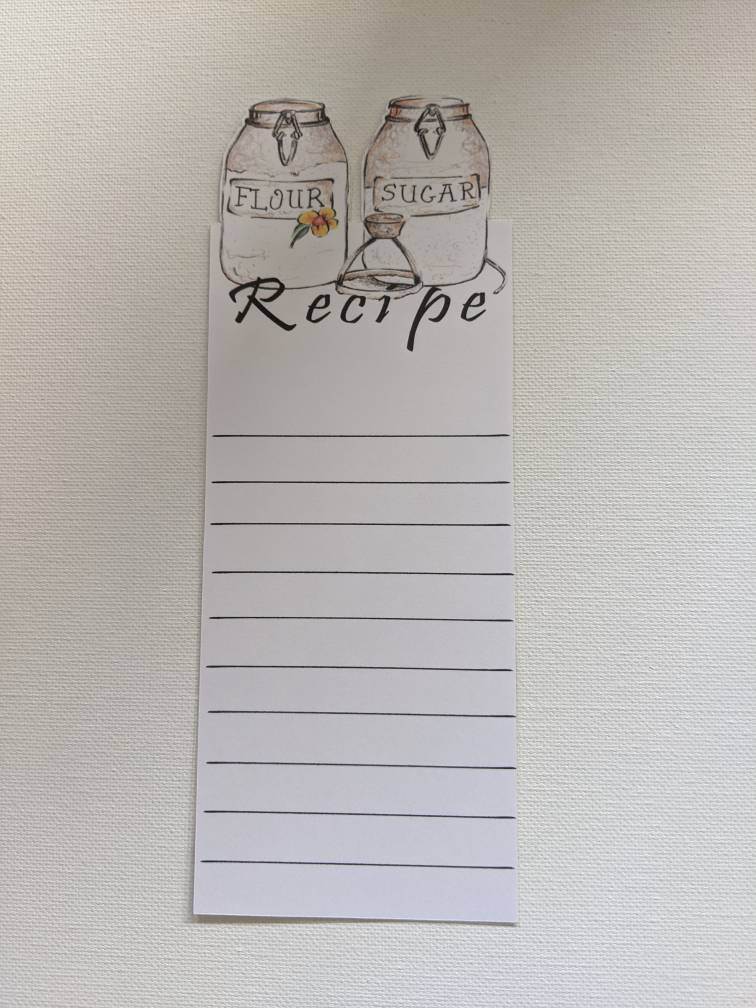 FLOUR SUGAR
Recipe